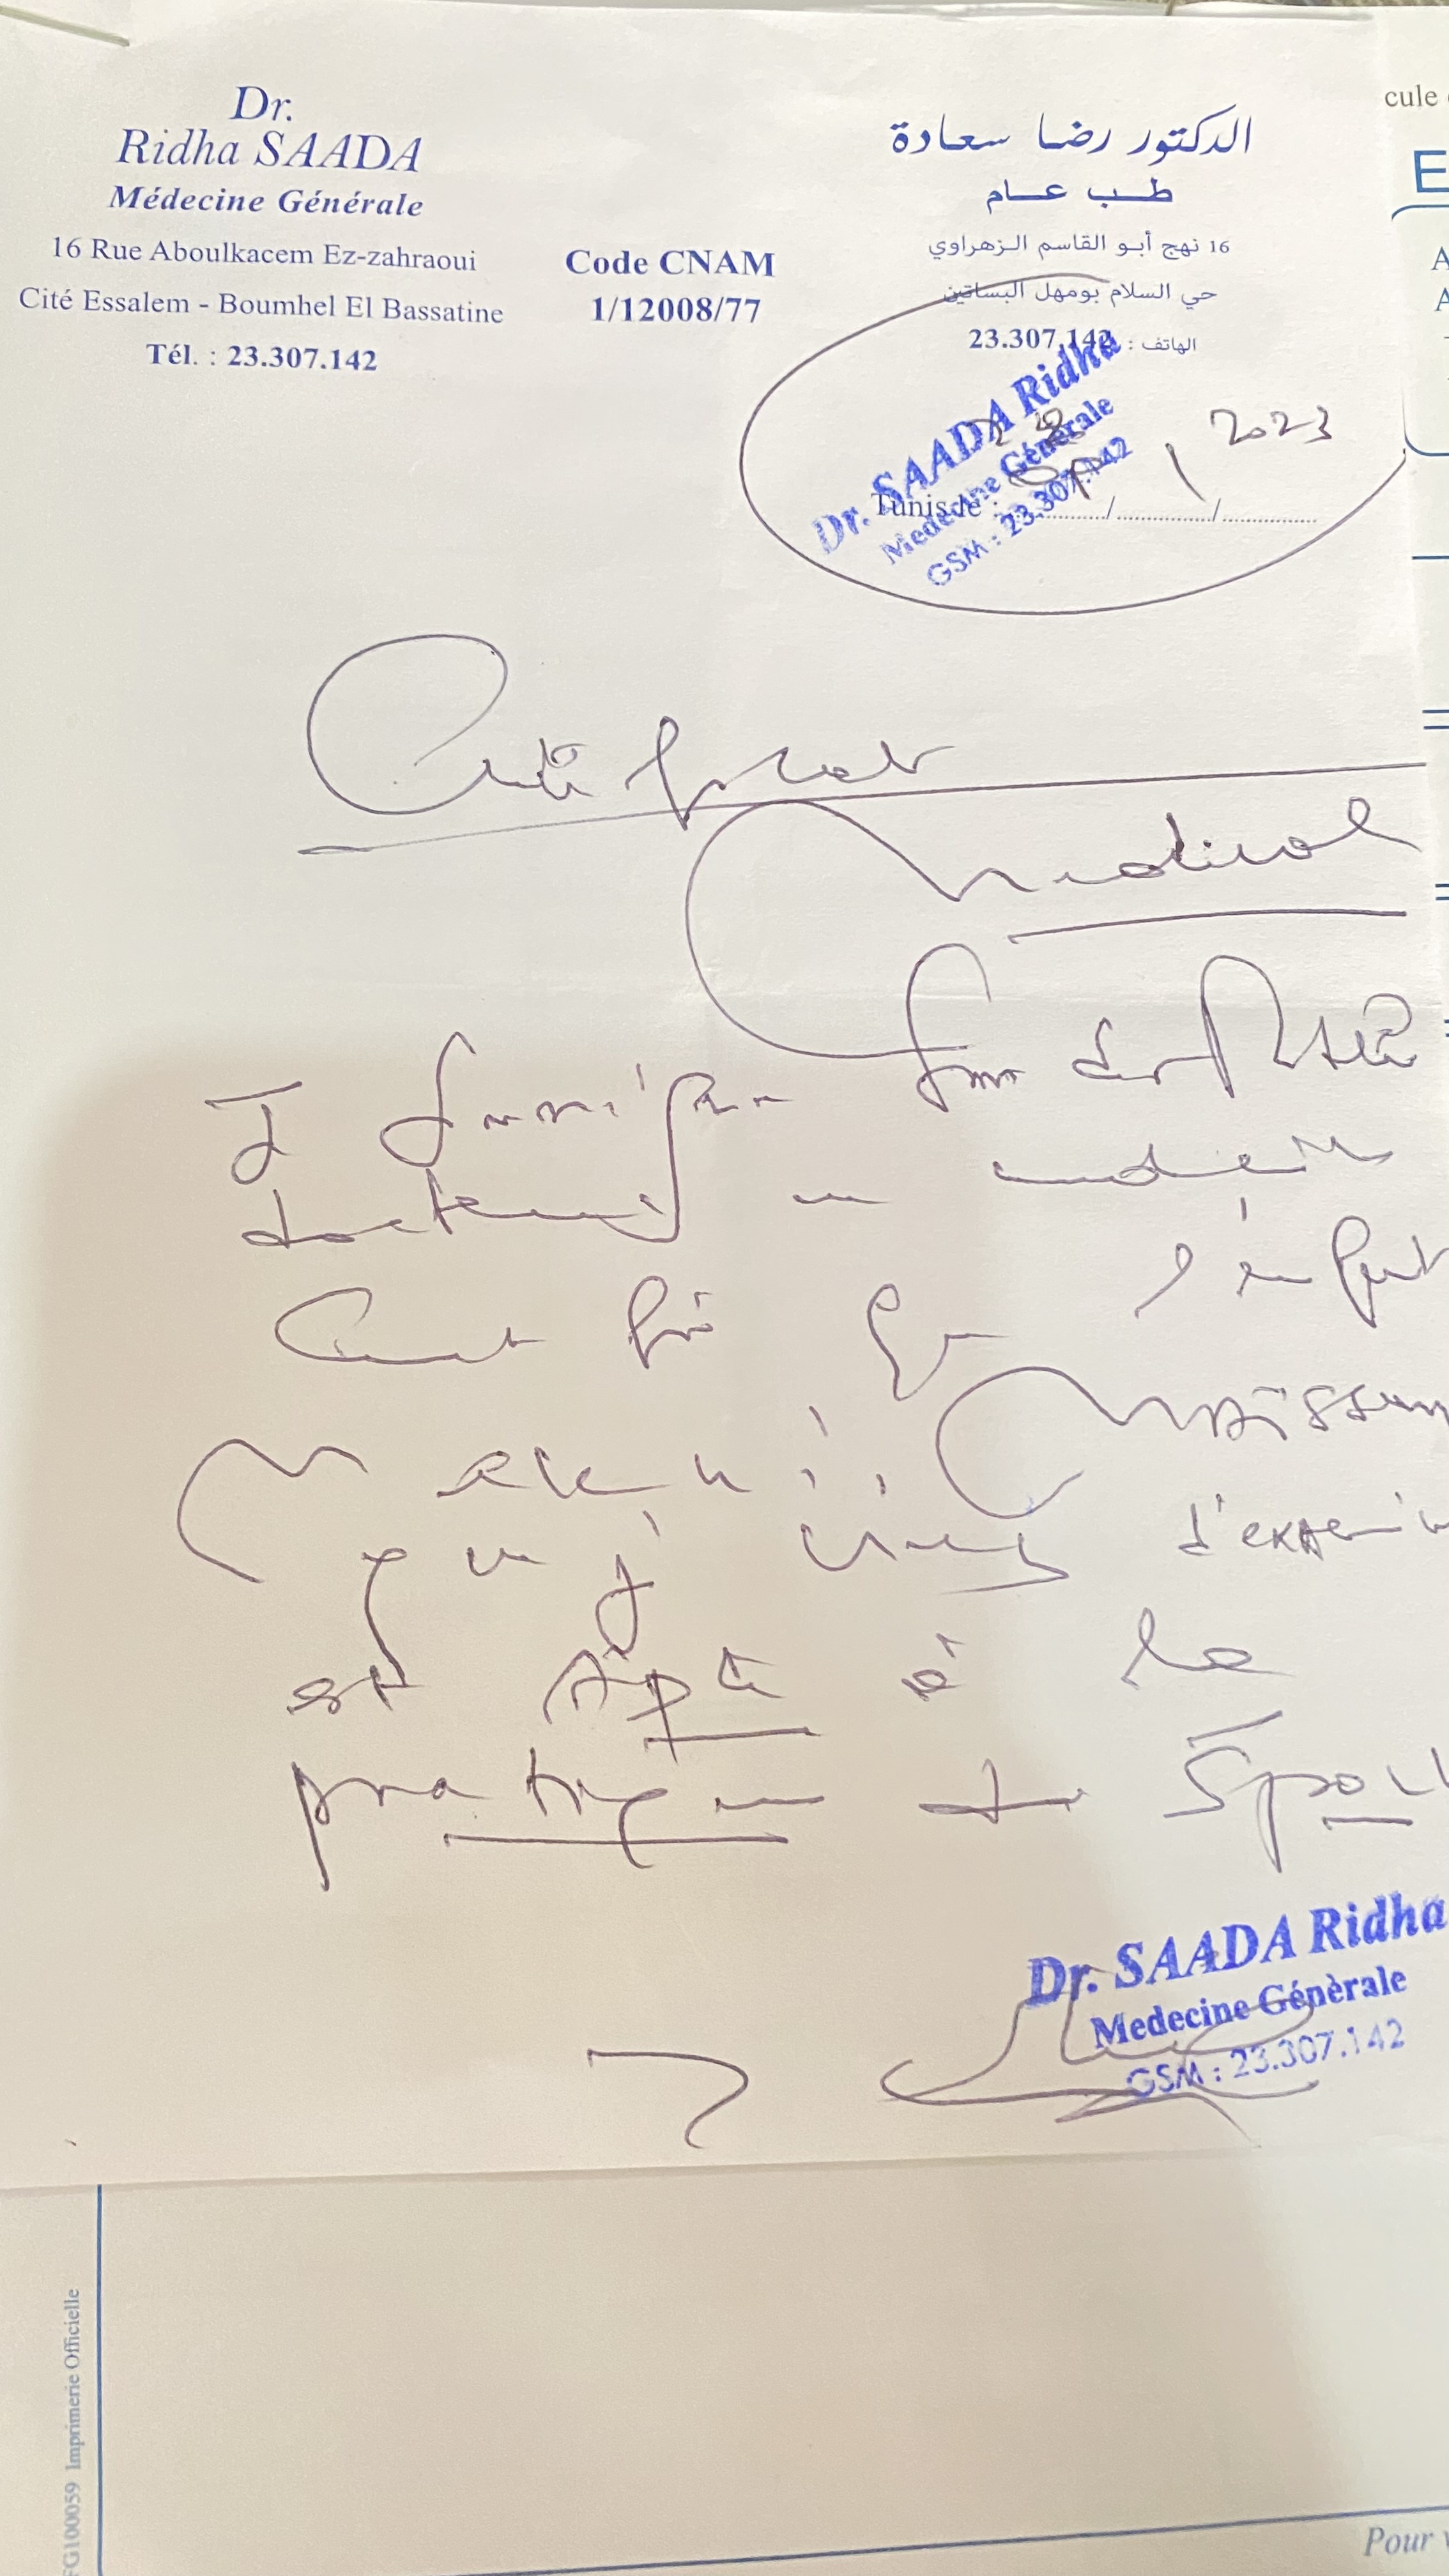 Dr.
Ridha SAADA
Médecine Générale
16 Rue Aboulkacem Ez-zahraoui
Cité Essalem - Boumhel El Bassatine
Tél. : 23.307.142
Code CNAM
1/12008/77
الدكتور رضا سعادة
طب عام
16 نهج أبو القاسم الزهراوي
حي السلام بومهل البساتين
الهاتف : 23.307.142
cule
E
A
A
Dr. SAADA Ridha
Medecine Générale
GSM : 23.307.142
Tunis le : 2023
Certificat
Medical
Je soussigné
docteur en médecine
Certifie que l'enfant
que j'ai d'examin
est Apte à la
pratique du Sport
Dr. SAADA Ridha
Medecine Générale
GSM : 23.307.142
FG100059 Imprimerie Officielle
Pour v